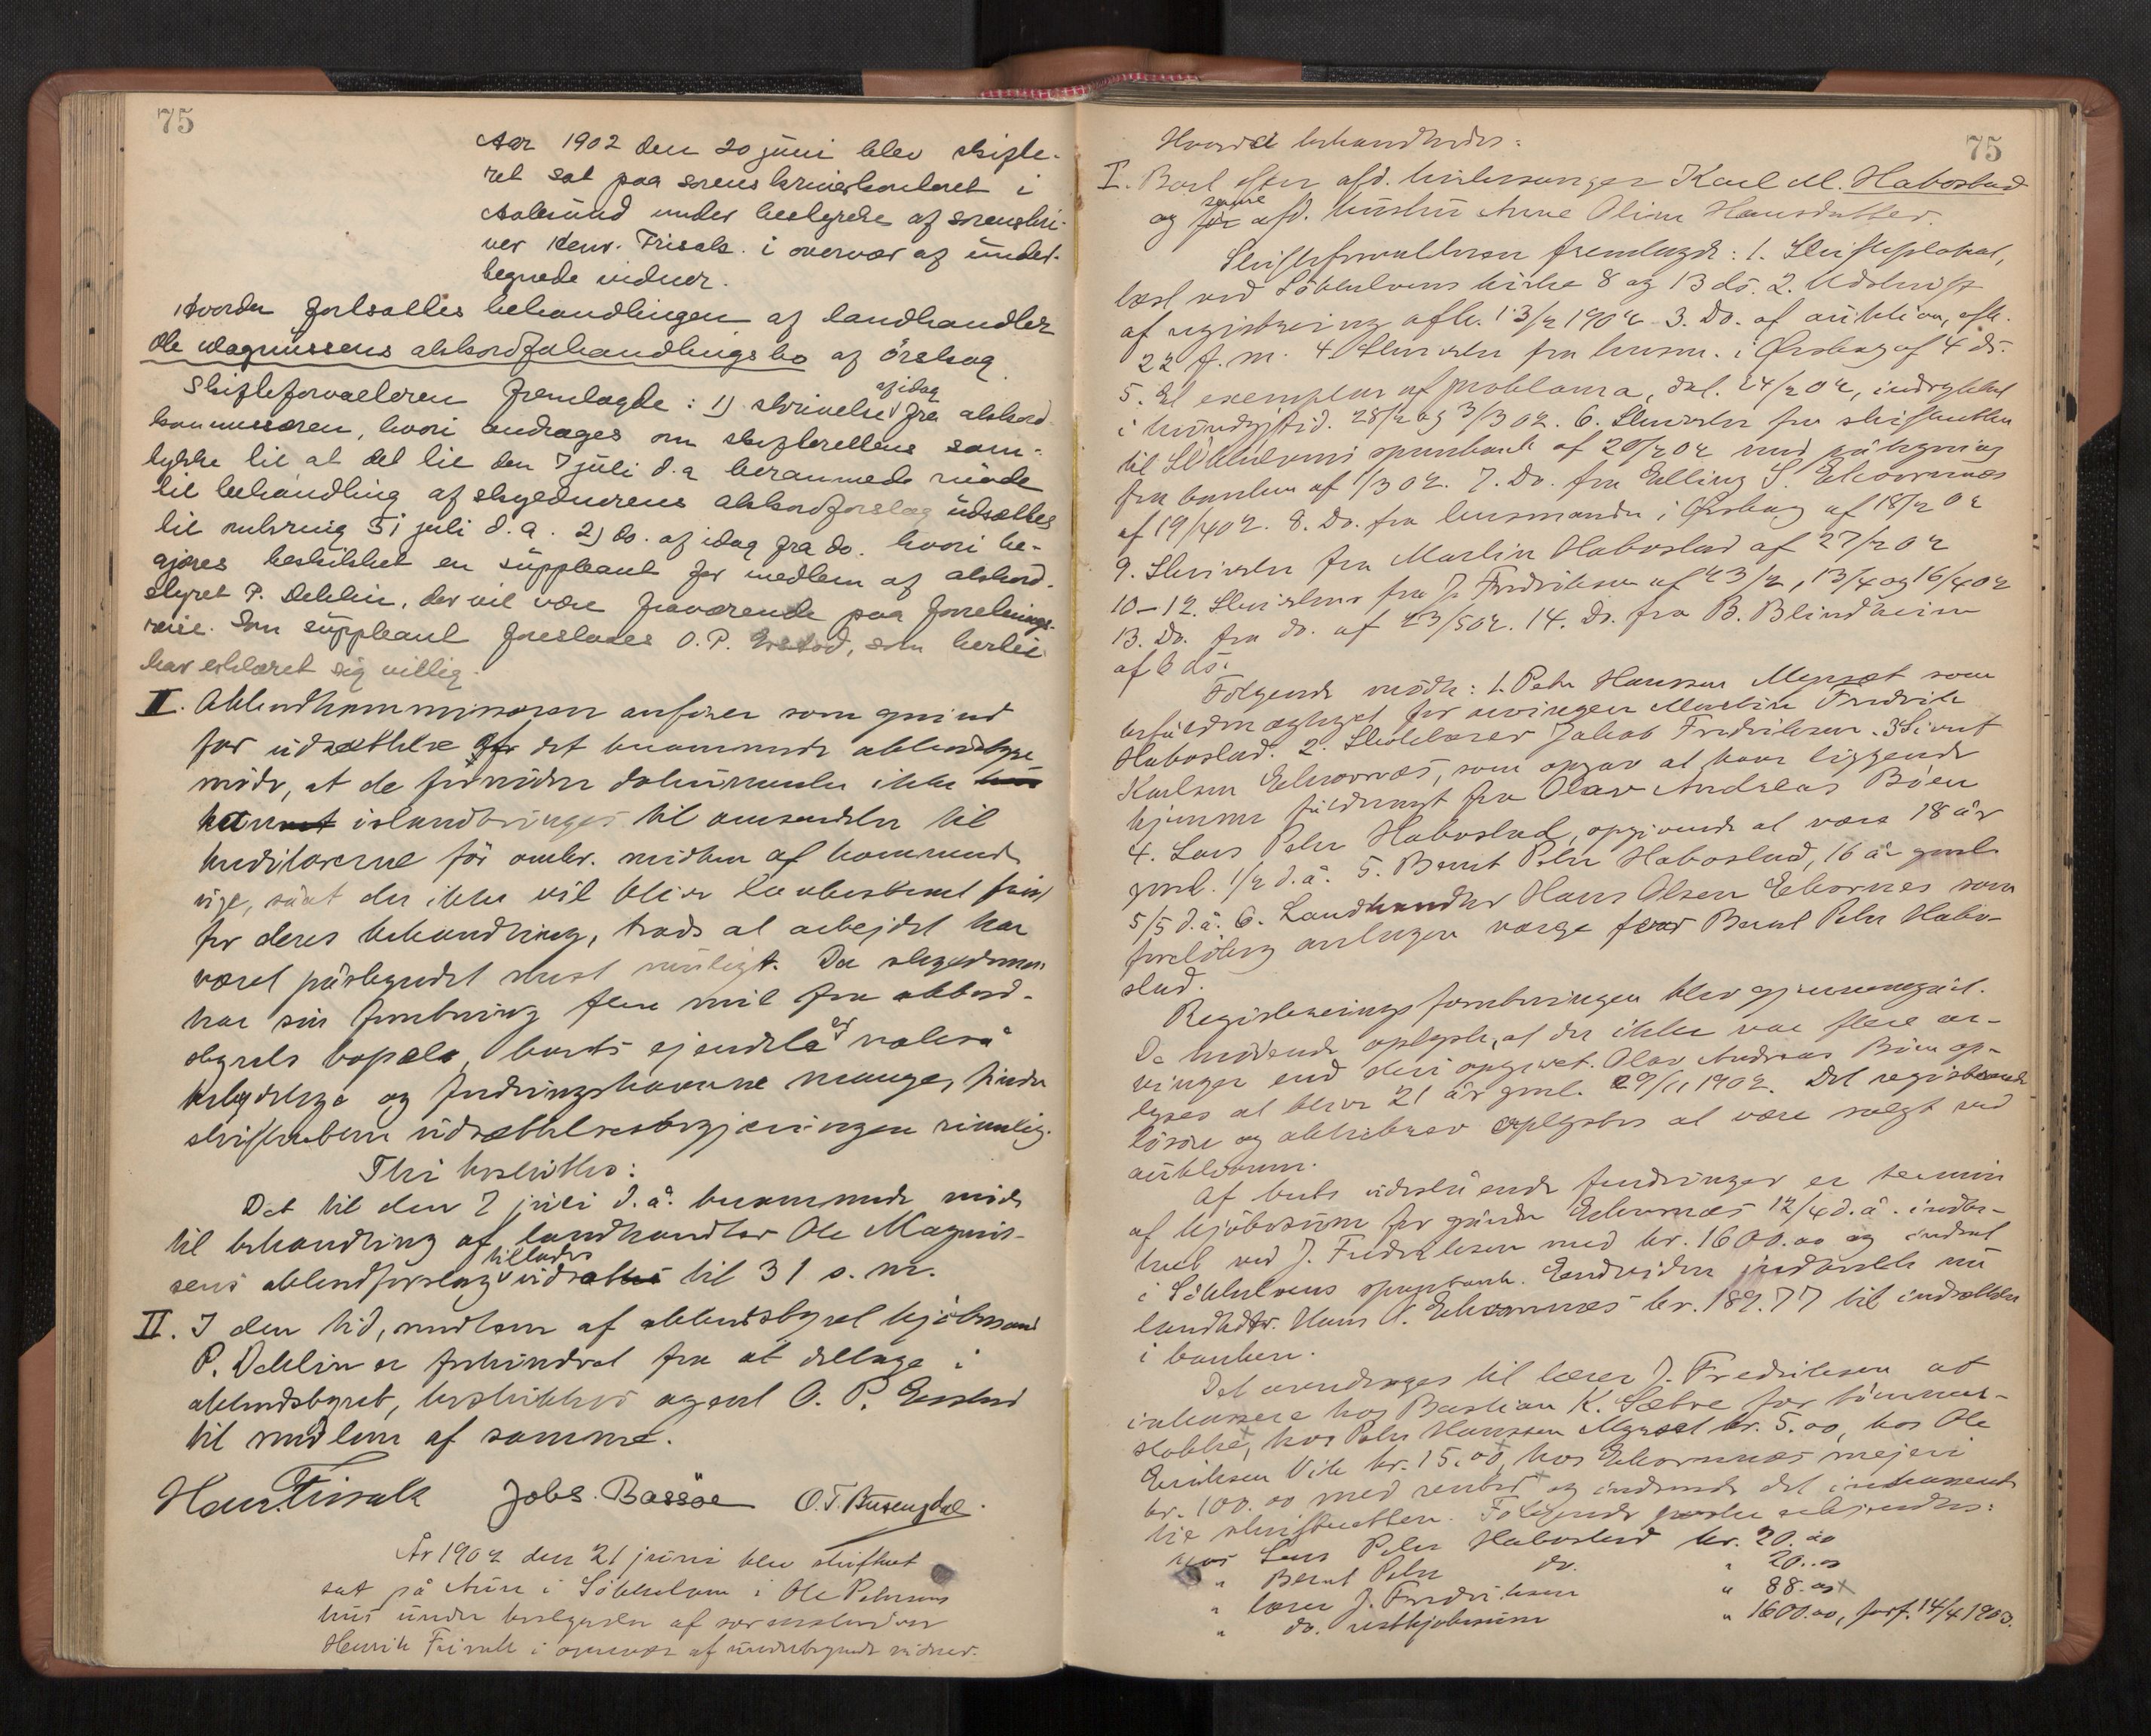 75
Aar 1902 den 20 juni blev skifte-
ret sat paa sorenskriverkontoret i
Aalesund under bestyrelse af sorenskri-
ver Henr. Frisak i overvær af under-
tegnede vidner.
Hvorda fortsattes behandlingen af landhandler
Ole Magnussens akkordforhandlingsbo af Örskog.
Skifteforvalteren fremlagde: 1) skrivelse af idag fra akkord-
kommissæren, hvori andrages om skifterettens sam-
tykke til at det til den 7 juli d. a. berammede möde
til behandling af skyldnerens akkordforslag udsættes
til omkring 31 juli d. a. 2) do. af idag fra do. hvori be-
gjæres beskikket en suppleant for medlem af akkord-
styret P. Dehlin, der vil være fraværende paa forretnings-
reise. Som suppleant foreslaaes O. P. Erstad, som hertil
har erklæret sig villig.
I. Akkordkommissæren anfører som grund
for udsættelse af det berammede akkord
möde, at de fornödne dokumenter ikke
kan istandbringes til omsendelse til
kreditorerne för omkr. midten af kommende
uge, såat der ikke vil blive lovbestemt frist
for deres behandling, trods at arbejdet har
været påskyndet mest muligt. Da skyldneren
har sin forretning flere mil fra akkord-
styrets bopæl, boets ejendele er
og fordringshaverne mange, finder
skifteretten udsættelsesbegjæringen rimelig.
Thi besluttes:
Det til den 7 juli d. å. berammede möde
til behandling af landhandler Ole Magnus-
sens akkordforslag tillades udsat til 31 s. m.
II. I den tid, medlem af akkordstyret kjöbmand
P. Dehlin er forhindret fra at deltage i
akkordstyret, beskikkes agent O. P. Erstad
til medlem af samme.
Henr. Frisak Johs. Bassöe O. T. Busengdal.
År 1902 den 21 juni blev skifteret
sat på Aure i Sökkelven i Ole Petersens
hus under bestyrelse af sorenskriver
Henrik Frisak i overvær af undertegnede vidner.
75
Hvorda behandledes:
I. Boet efter afd. kirkesanger Karl M. Habostad
og før senere afd. hustru Anne Oline Hansdatter.
Skifteforvalteren fremlagde: 1. Skifteplakat,
læst ved Sökkelvens kirke 8 og 13 ds. 2. Udskrift
af registrering afh. 13/2 1902. 3. Do. af auktion, afh.
22 f. m. 4 Skrivelse fra lensm. i Ørskog af 4 ds.
5. Et exemplar af proklama, dat. 24/2 02, indrykket
i kundgjtid. 28/2 og 3/3 02. 6. Skrivelse fra skifteretten
til Sökkelvens sparebank af 20/2 02 med påtegning
fra banken af 1/3 02. 7. Do. fra Elling S. Ekornnæs
af 19/4 02. 8. Do. fra lensmanden i Ørskog af 18/2 02
9. Skrivelse fra Martin Habostad af 27/2 02
10-12. Skrivelser fra J. Fredriksen af 23/2, 13/4 og 16/4 02
13. Do. fra do. af 23/5 02. 14. Do. fra B. Blindheim
af 6 ds.
Fölgende mödte: 1. Peter Hanssen Myrset som
befuldmægtiget for arvingen Martin Fredrik
Habostad. 2. Skolelærer Jakob Fredriksen. 3 Sivert
Karlsen Ekornnæs, som opgav at have liggende
hjemme fuldmagt fra Olav Andreas Böen
4. Lars Peter Habostad, opgivende at være 18 år
gml. 1/2 d. å. 5. Bernt Peter Habostad, 16 år gml.
5/5 d. å. 6. Landhandler Hans Olsen Ekornes som
foreløbig antagen værge for Bernt Peter Habo-
stad.
Registreringsforretningen blev gjennemgået.
De mödende oplyste, at der ikke var flere ar-
vinger end deri opgivet. Olav Andreas Böen op-
lyses at blive 21 år gml. 29/11 1902. Det registrerede
lösöre og aktiebrev oplystes at være solgt ved
auktionen.
Af boets udestående fordringer er termin
af kjöbesum for gården Ekornnæs 14/4 d. å. indbe-
talt ved J. Fredriksen med kr. 1600.00 og indsat
i Sökkelvens sparebank. Endvidere indbetalte nu
landhdlr. Hans O. Ekornnæs kr. 189.77 til indsættelse
i banken.
Det overdrages til lærer J. Fredriksen at
inkassere hos Bastian K. Sætre for tömmer-
stokke, hos Peter Hanssen Myrset kr. 5.00, hos Ole
Eriksen Vik kr. 15.00, hos Ekornnæs mejeri
kr. 100.00 med renter og indsende det inkasserede
til skifteretten. Fölgende poster erkjendtes:
hos Lars Peter Habostad kr. 20.00
" Bernt Peter do. " 20.00
" lærer J. Fredriksen " 88.00
" do. restkjöbesum " 1600.00, forf. 14/4 1903.